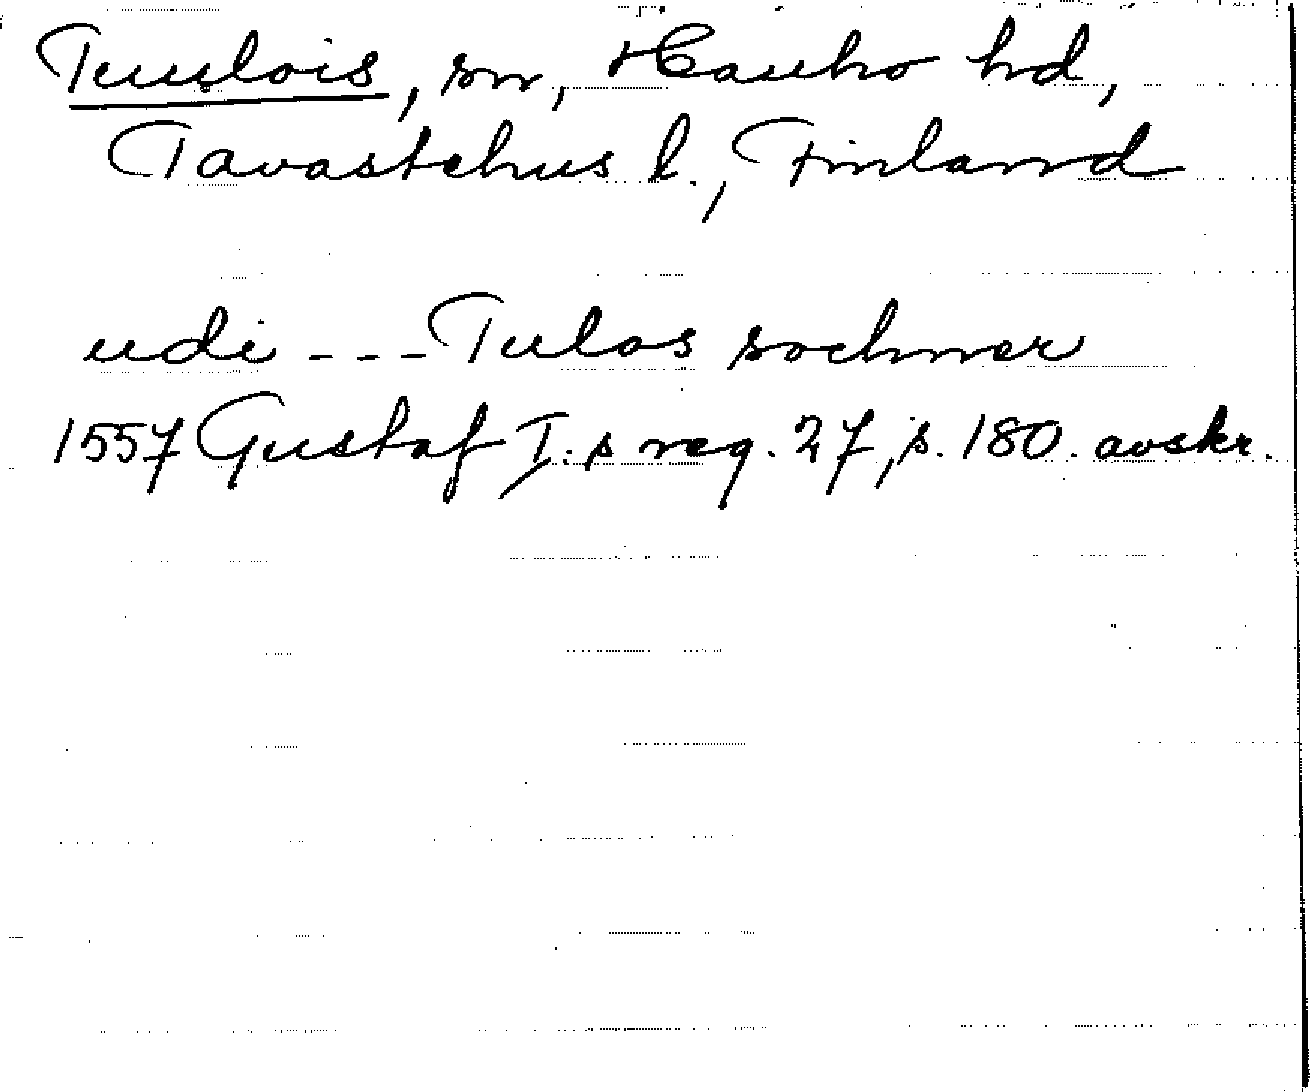 Tuulois, sn, Hauho hd,
Tavastehus l., Finland
udi --- Tulos sochner
1557 Gustaf I:s reg. 27, s. 180. avskr.